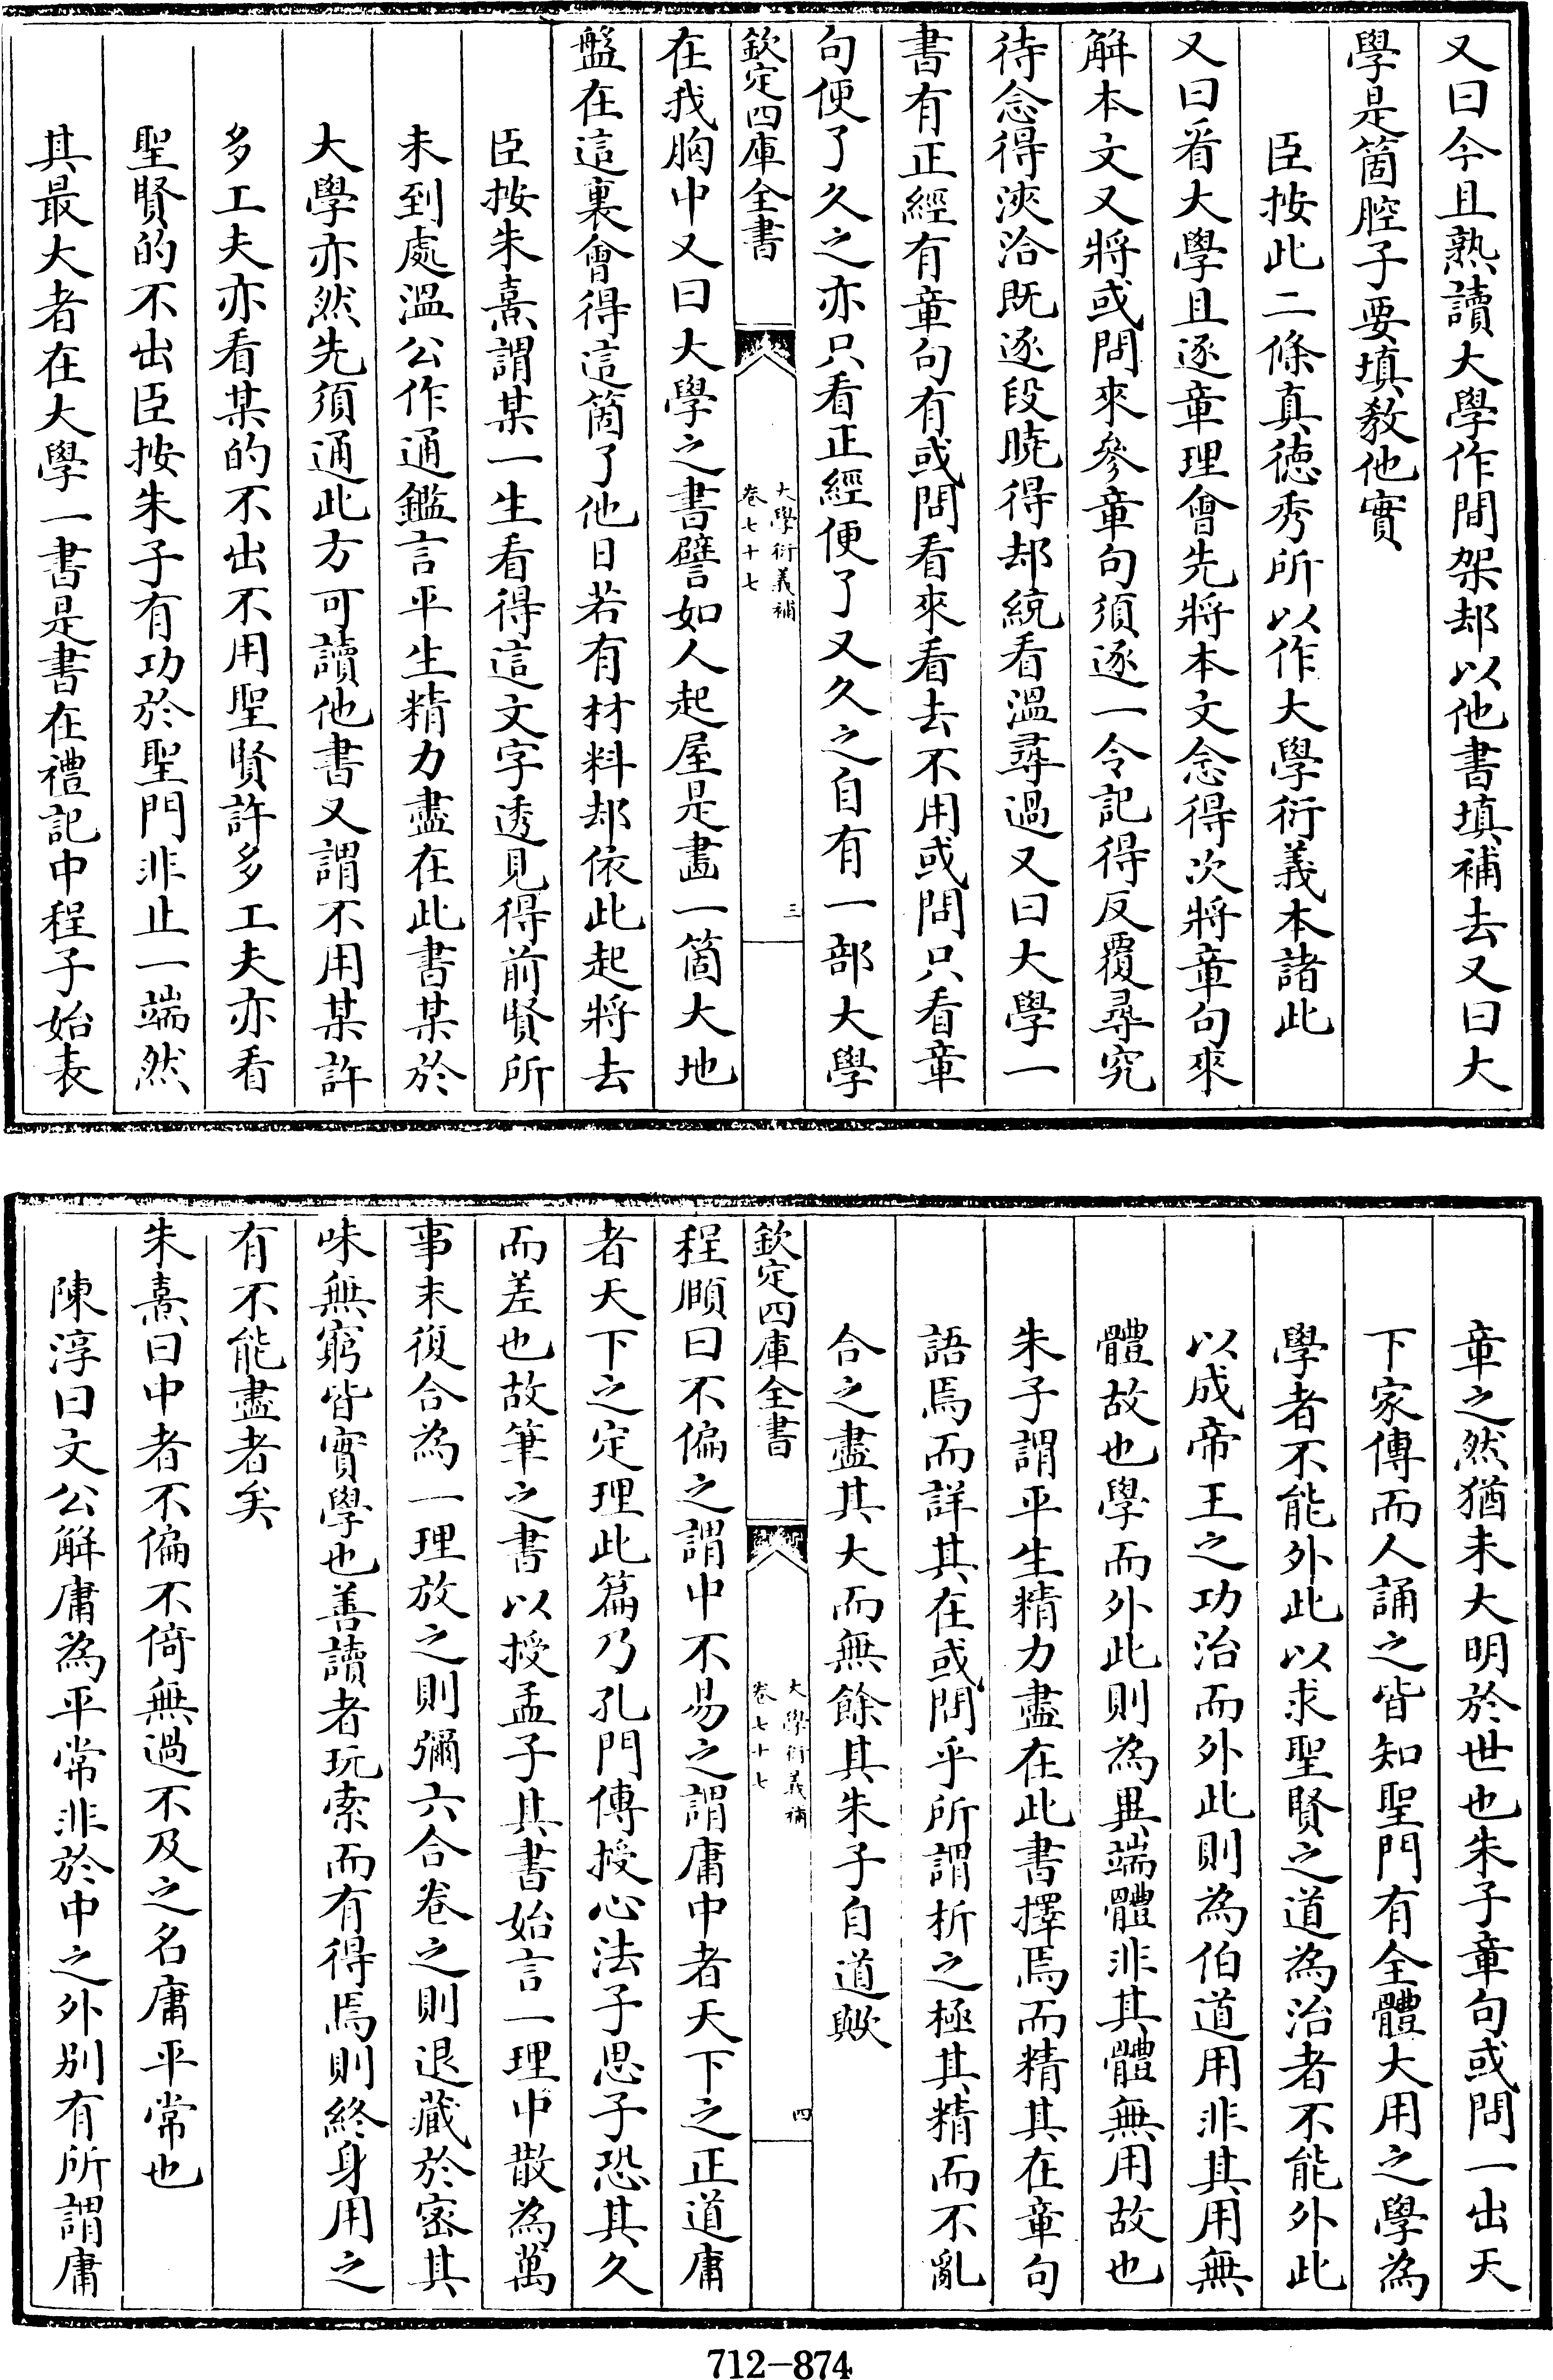 又曰今且熟讀大學作間架却以他書填補去又曰大
學是箇腔子要填教他實
臣按此二條真徳秀所以作大學衍義本諸此
又曰看大學且逐章理會先將本文念得次將章句來
解本文又將或問來參章句須逐一令記得反覆尋究
待念得浹洽既逐段曉得却統看溫尋過又曰大學一
書有正經有章句有或問看來看去不用或問只看章
句便了久之亦只看正經便了又久之自有一部大學
欽定四庫全書
大學衍義補
卷七十七
三
在我胸中又曰大學之書譬如人起屋是畫一箇大地
盤在這裏會得這箇了他日若有材料却依此起將去
臣按朱熹謂某一生看得這文字透見得前賢所
未到處溫公作通鑑言平生精力盡在此書某於
大學亦然先須通此方可讀他書又謂不用某許
多工夫亦看某的不出不用聖賢許多工夫亦看
聖賢的不出臣按朱子有功於聖門非止一端然
其最大者在大學一書是書在禮記中程子始表
章之然猶未大明於世也朱子章句或問一出天
下家傳而人誦之皆知聖門有全體大用之學為
學者不能外此以求聖賢之道為治者不能外此
以成帝王之功治而外此則為伯道用非其用無
體故也學而外此則為異端體非其體無用故也
朱子謂平生精力盡在此書擇焉而精其在章句
語焉而詳其在或問乎所謂析之極其精而不亂
合之盡其大而無餘其朱子自道歟
欽定四庫全書
大學衍義補
卷七十七
四
程頤曰不偏之謂中不易之謂庸中者天下之正道庸
者天下之定理此篇乃孔門傳授心法子思子恐其久
而差也故筆之書以授孟子其書始言一理中散為萬
事末復合為一理放之則彌六合卷之則退藏於密其
味無窮皆實學也善讀者玩索而有得焉則終身用之
有不能盡者矣
朱熹曰中者不偏不倚無過不及之名庸平常也
陳淳曰文公解庸為平常非於中之外别有所謂庸
712-874